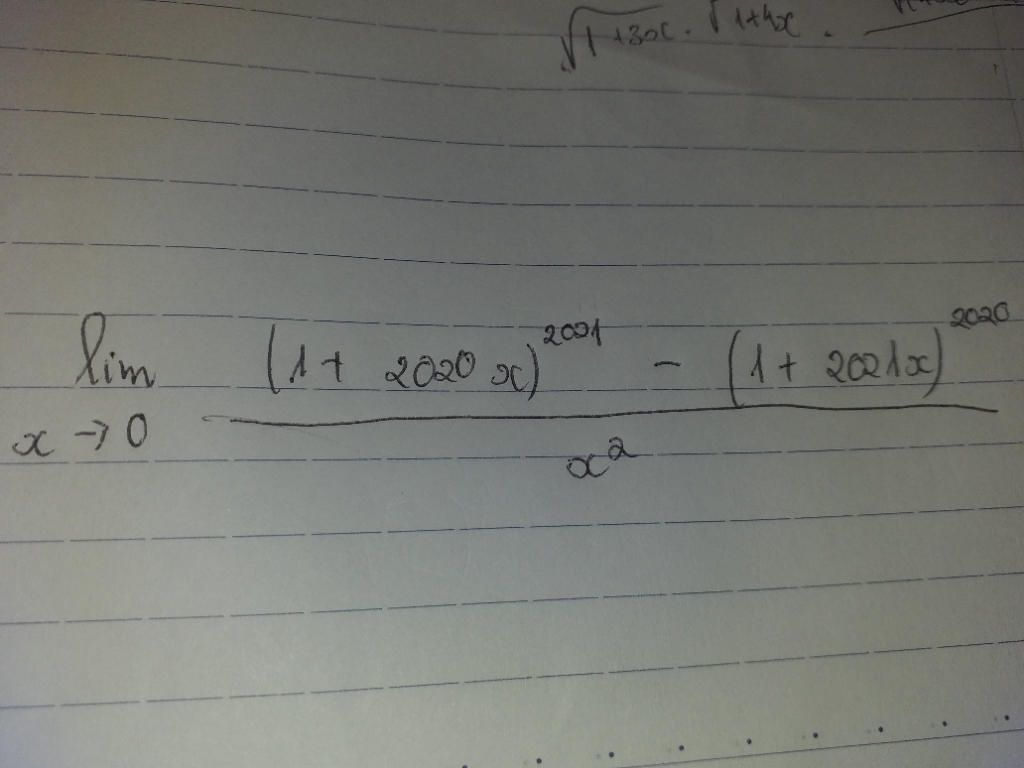 √1+3x . √1+4x .
lim (1 + 2020 x)^2021 - (1 + 2021x)^2020
x → 0 x^2